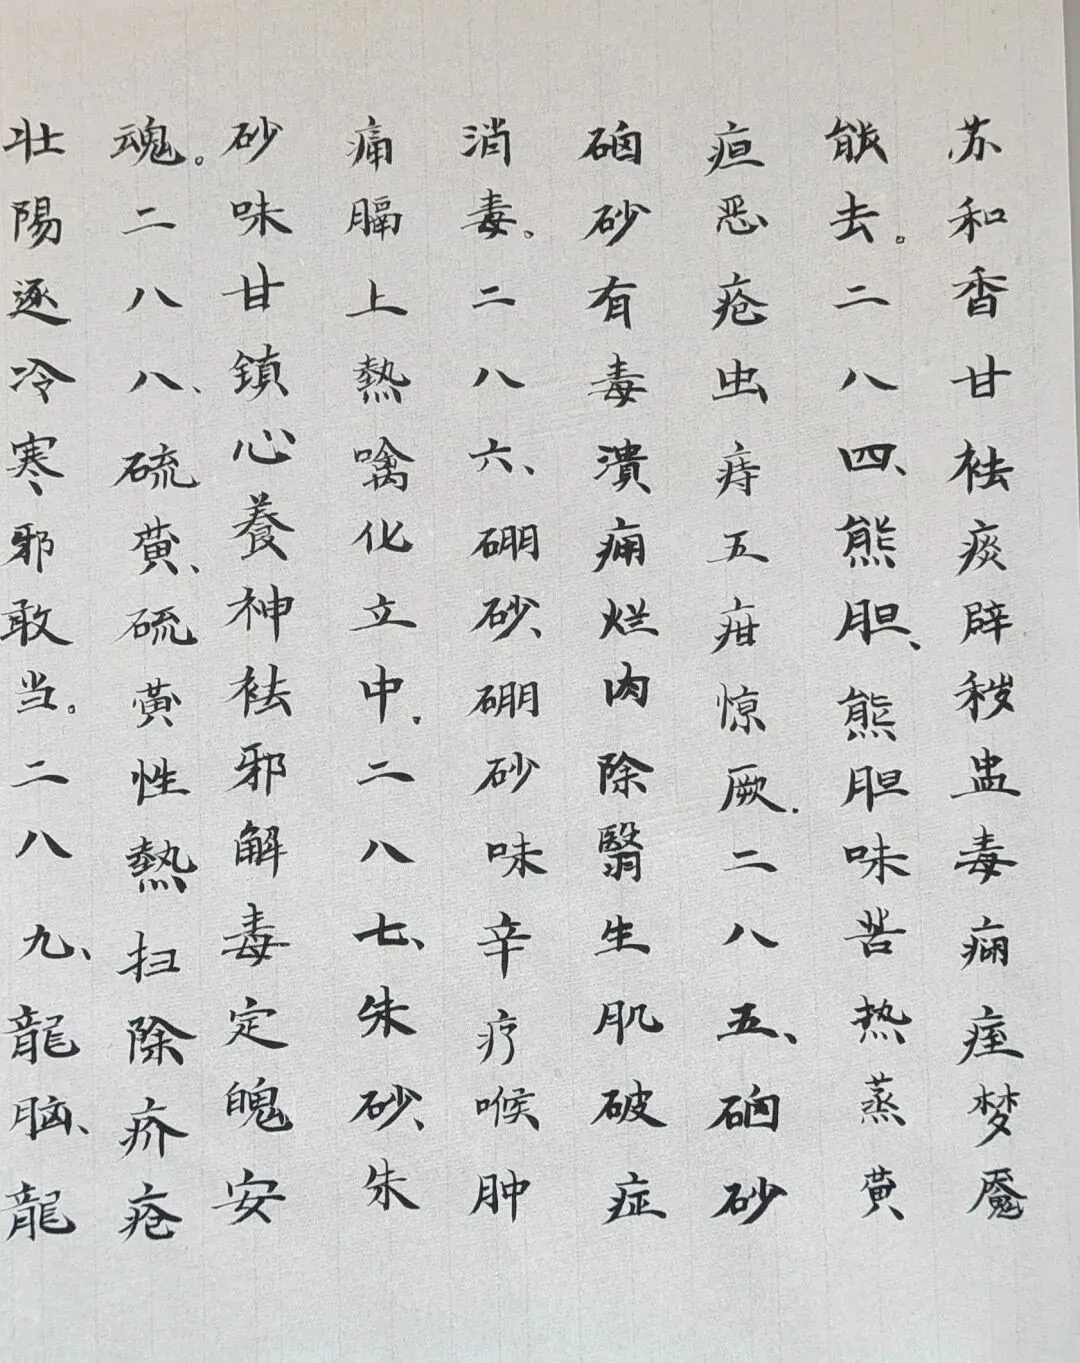 苏和香甘祛痰辟秽蛊毒痫痓梦魇
能去。二八四、熊胆、熊胆味苦热蒸黄
疸恶疮虫痔五疳惊厥.二八五、硇砂
硇砂有毒溃痈烂肉除翳生肌破症
消毒。二八六、硼砂、硼砂味辛疗喉肿
痛膈上熱噙化立中.二八七、朱砂、朱
砂味甘鎮心養神祛邪解毒定魄安
魂。二八八、硫黄、硫黄性熱扫除疥疮
壮陽逐冷寒、邪敢当。二八九、龍脑、龍